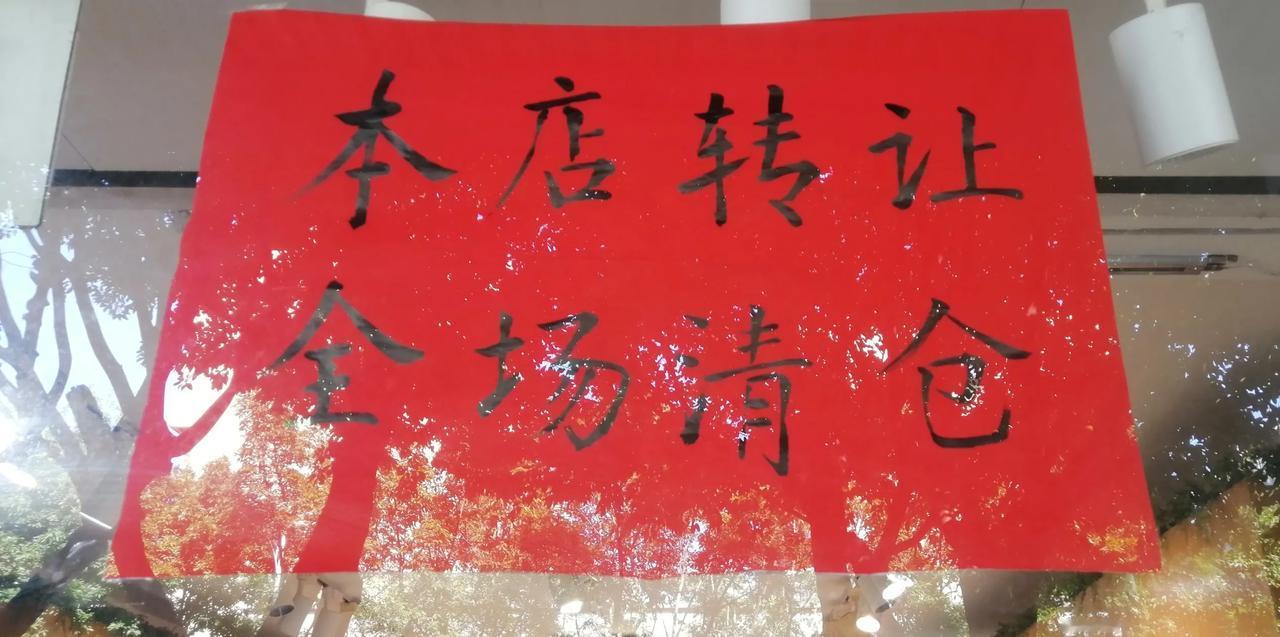 本店转让
全场清仓